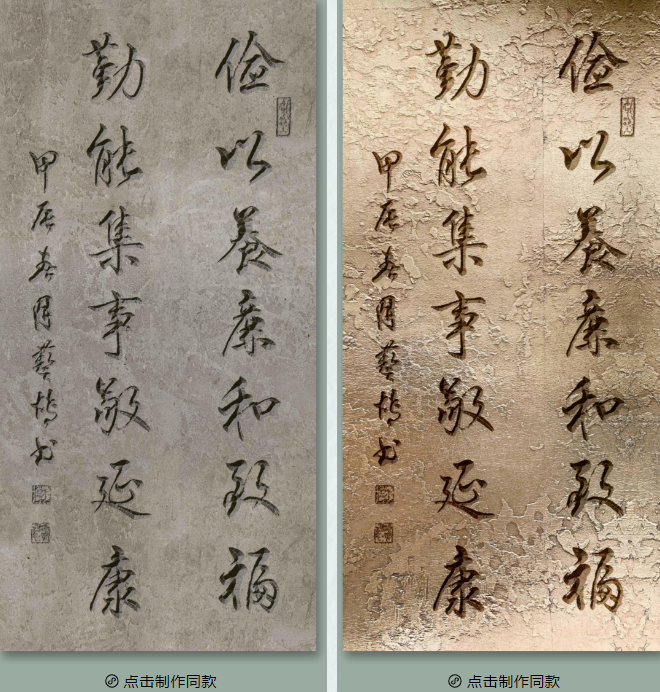 俭以养廉和致福
勤能集事敬延康
甲辰春月艺
书
点击制作同款
俭以养廉和致福
勤能集事敬延康
甲辰春月艺
书
点击制作同款